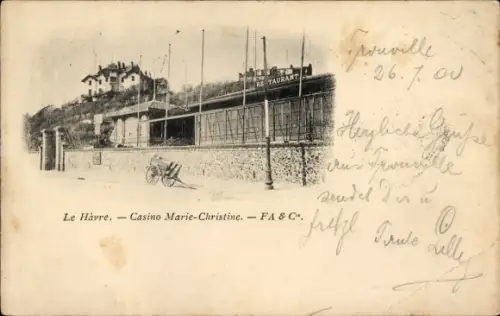 RESTAURANT
Le Hâvre. — Casino Marie-Christine. — FA & Cie.
Trouville
26. 7. 00
Herzliche Grüsse
aus Trouville
sendet Dir u
Trude Lilly